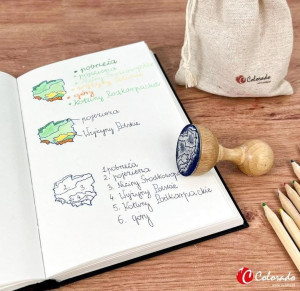 • pobrzeża
• pojezierza
• góry
• Kotliny Podkarpackie
pojezierza
Wyżyny Polskie
1. pobrzeża
2. pojezierza
3. Niziny Środkowopolskie
4. Wyżyny Polskie
5. Kotliny Podkarpackie
6. góry
Colorado
Colorado